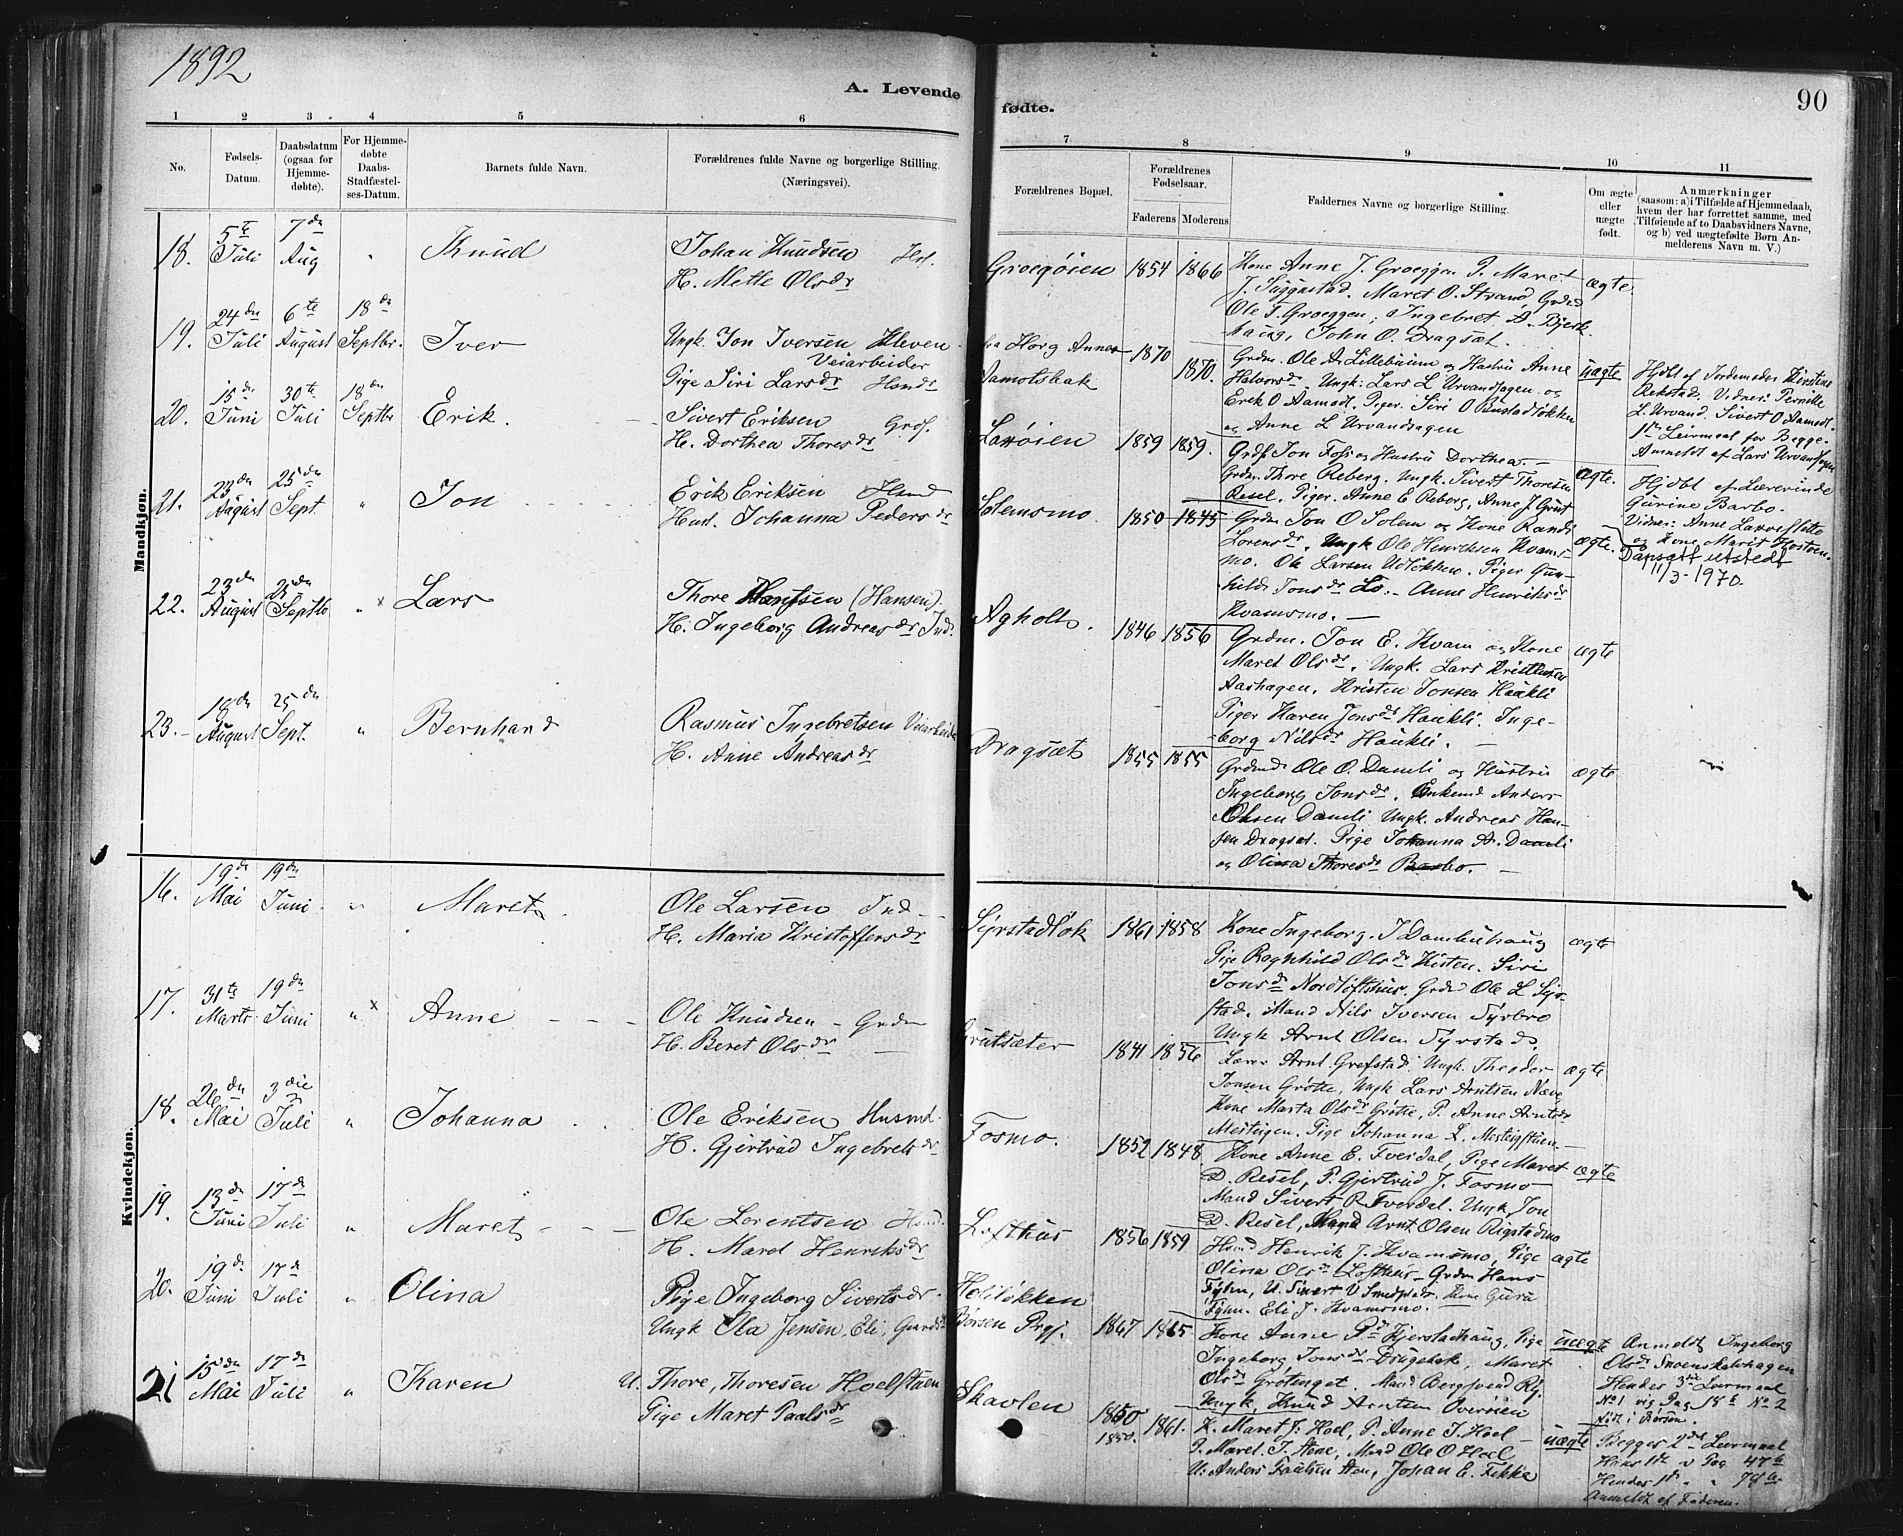 1892
A. Levende
fødte.
90
1 2 3 4 5 6
7 8 9 10 11
No.
Fødsels-Datum.
Daabsdatum (ogsaa for Hjemmedøbte).
For Hjemmedøbte Daabs-Stadfæstelses-Datum.
Barnets fulde Navn.
Forældrenes fulde Navne og borgerlige Stilling. (Næringsvei).
Forældrenes Bopæl.
Forældrenes Fødselsaar.
Faderens Moderens
Faddernes Navne og borgerlige Stilling.
Om ægte eller uægte født.
Anmærkninger (saasom: a) i Tilfælde af Hjemmedaab, hvem der har forrettet samme, med Tilføiende af to Daabsvidners Navne, og b) ved uægtefødte Børn Anmelderens Navn m. V.)
Mandkjøn.
18. 5te Juli 7de Aug " Knud
Johan Knudsen
H. Mette Olsdr
Groegøien 1854 1866
Kone Anne J. Groeggen P. Maret
J. Syggustad. Maret O. Strand
Ole T. Groeggen, Ingebret D. Bjerk-
haug, John O. Dragsæt.
ægte.
19. 24de Juli 6te August 18de Septbr. Iver
Ungk. Jon Iversen Kleven
Veiarbeider
Pige Siri Larsdr
fra Horg 1870 1870.
Ole A. Lillebuum og Hustru Anne
Halvorsdr. Ungk: Lars L Urvandsagen og
Erik O Aamodt. Piger: Siri O
og Anne L Urvandsagen
uægte
Hjdbt af Jordemoder Kirstine
Rekstad. Vidner: Pernille
L. Urvand. Sivert O Aamodt.
1ste Leirmaal for Begge.
Anmeldt af Lars Urvandsagen
20. 15de Juni 30te Juli 18de Septbr Erik.
Sivert Eriksen
H. Dorthea Thoresdr
Larøien 1859 1859.
Jon Foss og Hustru Dorthea.
Thore Reberg. Ungk. Sivert Thoresen
Resel. Piger. Anne E Reberg, Anne J. Grut
ægte.
Hjdbt af Lærerinde
Gurine Barbo.
Vidner: Anne
og Kone Marit
21. 23de August 25de Sept. " Jon
Erik Eriksen Hsmd
Hust. Johanna Pedersdr
Solemsmo. 1850 1845
Grdm Jon O Solem og Kone Randi
Lorensdr. Ungk Ole Henriksen Kvams-
mo. Ole Larsen Udløkken. Piger Gun-
hild Jonsdr Lo. Anne Henriksdr
Kvamsmo.
ægte.
Dåpsatt utstedt
11/3-1970.
22. 23de August 25de Septb " x Lars
Thore Hansen (Hansen).
H. Ingeborg Andreasdr Ind.
Agholt. 1846 1856
Grdm. Jon E. Kvam og Kone
Maret Olsdr. Ungk. Lars
Aashagen. Kristen Jonsen Haukli
Piger Karen Jonsdr Haukli. Inge-
borg Nilsdr Haukli.
ægte
23. 18de August 25de Sept. " Bernhard
Rasmus Ingebretsen Veiarbeider
H. Anne Andreasdr
Dragsæt 1855 1855
Grdmd Ole O. Damli og Hustru
Ingeborg Jonsdr. Enkemd Anders
Olsen Damli Ungk. Andreas Han-
sen Dragsæt. Pige Johanna A. Damli
og Olina Thoresdr Barbo.
ægte
Kvindekjøn.
16. 19de Mai 19de Juni. " Maret
Ole Larsen Ind
H. Maria Kristoffersdr
Syrstadløk 1861 1858
Kone Ingeborg. J Dambuhaug
Pige Ragnhild Olsdr Kisten. Siri
Jonsdr Nordløfthus. Ole L Syr-
stad. Mand Nils Iversen Syrbro
Ungk Arnt Olsen Syrstad.
ægte
17. 31te Marts 19de Juni " x Anne
Ole Knudsen Grdm
H. Beret Olsdr
Grutsæter 1841 1856
Lærer Arnt Grefstad Ungk. Theodor
Jonsen Grøtte, Ungk Lars Arntsen Næve
Kone Marta Olsdr Grøtte, P. Anne Arntsdr
Mesteigen. Pige Johanna L. Mesteigstuen.
ægte
18. 26de Mai 3die Juli " Johanna
Ole Eriksen Husmd.
H. Gjertrud Ingebretsdr
Fosmo. 1852 1848
Kone Anne E. Fverdal, Pige Maret
D. Resel, P. Gjertrud J. Fosmo
Mand Sivert R. Fverdal. Ungk Jon
D. Resel, Mand Arnt Olsen Rigstadmo
ægte
19. 13de Juni 17de Juli " Maret
Ole Lorentsen Hsmd.
H. Maret Henriksdr
Lofthus 1856 1859
Hsmd Henrik J. Kvamsmo, Pige
Olina Olsdr Lofthus. Grdm Hans
Fyhn, U. Sivert Kone Guru
Fyhn. Eli J. Kvamsmo.
ægte
20. 19de Juni 17de Juli " Olina
Pige Ingeborg Sivertsdr.
Ungk Ola Jensen Eli,
Holiløkken
Børsen Prgj. 1867 1865
Kone Anne Kjerstadhaug, Pige
Ingeborg Jonsdr Drugebak, Maret
Olsdr Grotinget. Mand
Ungk. Knud Arntsen
uægte
Anmeldt Ingeborg
Olsdr Svoenskalvhagen
Hendes 3die Leirmaal
No 1 vig Pag No 2
født i Børsen.
21 15de Mai 17de Juli " Karen
U. Thore, Thoresen Hoelstuen
Pige Maret Paalsdr
Skavlen 1850
1850. 1861.
K. Maret J. Hoel, P. Anne J. Hoel
P. Maret T. Stene, Mand Ole O Hoel
U: Anders Paulsen Sten, Johan E. Fikke
uægte
Begges 2det Leirmaal
Hans 1ste v Pag 47
Hendes 1ste " " 78
Anmeldt af Faderen.